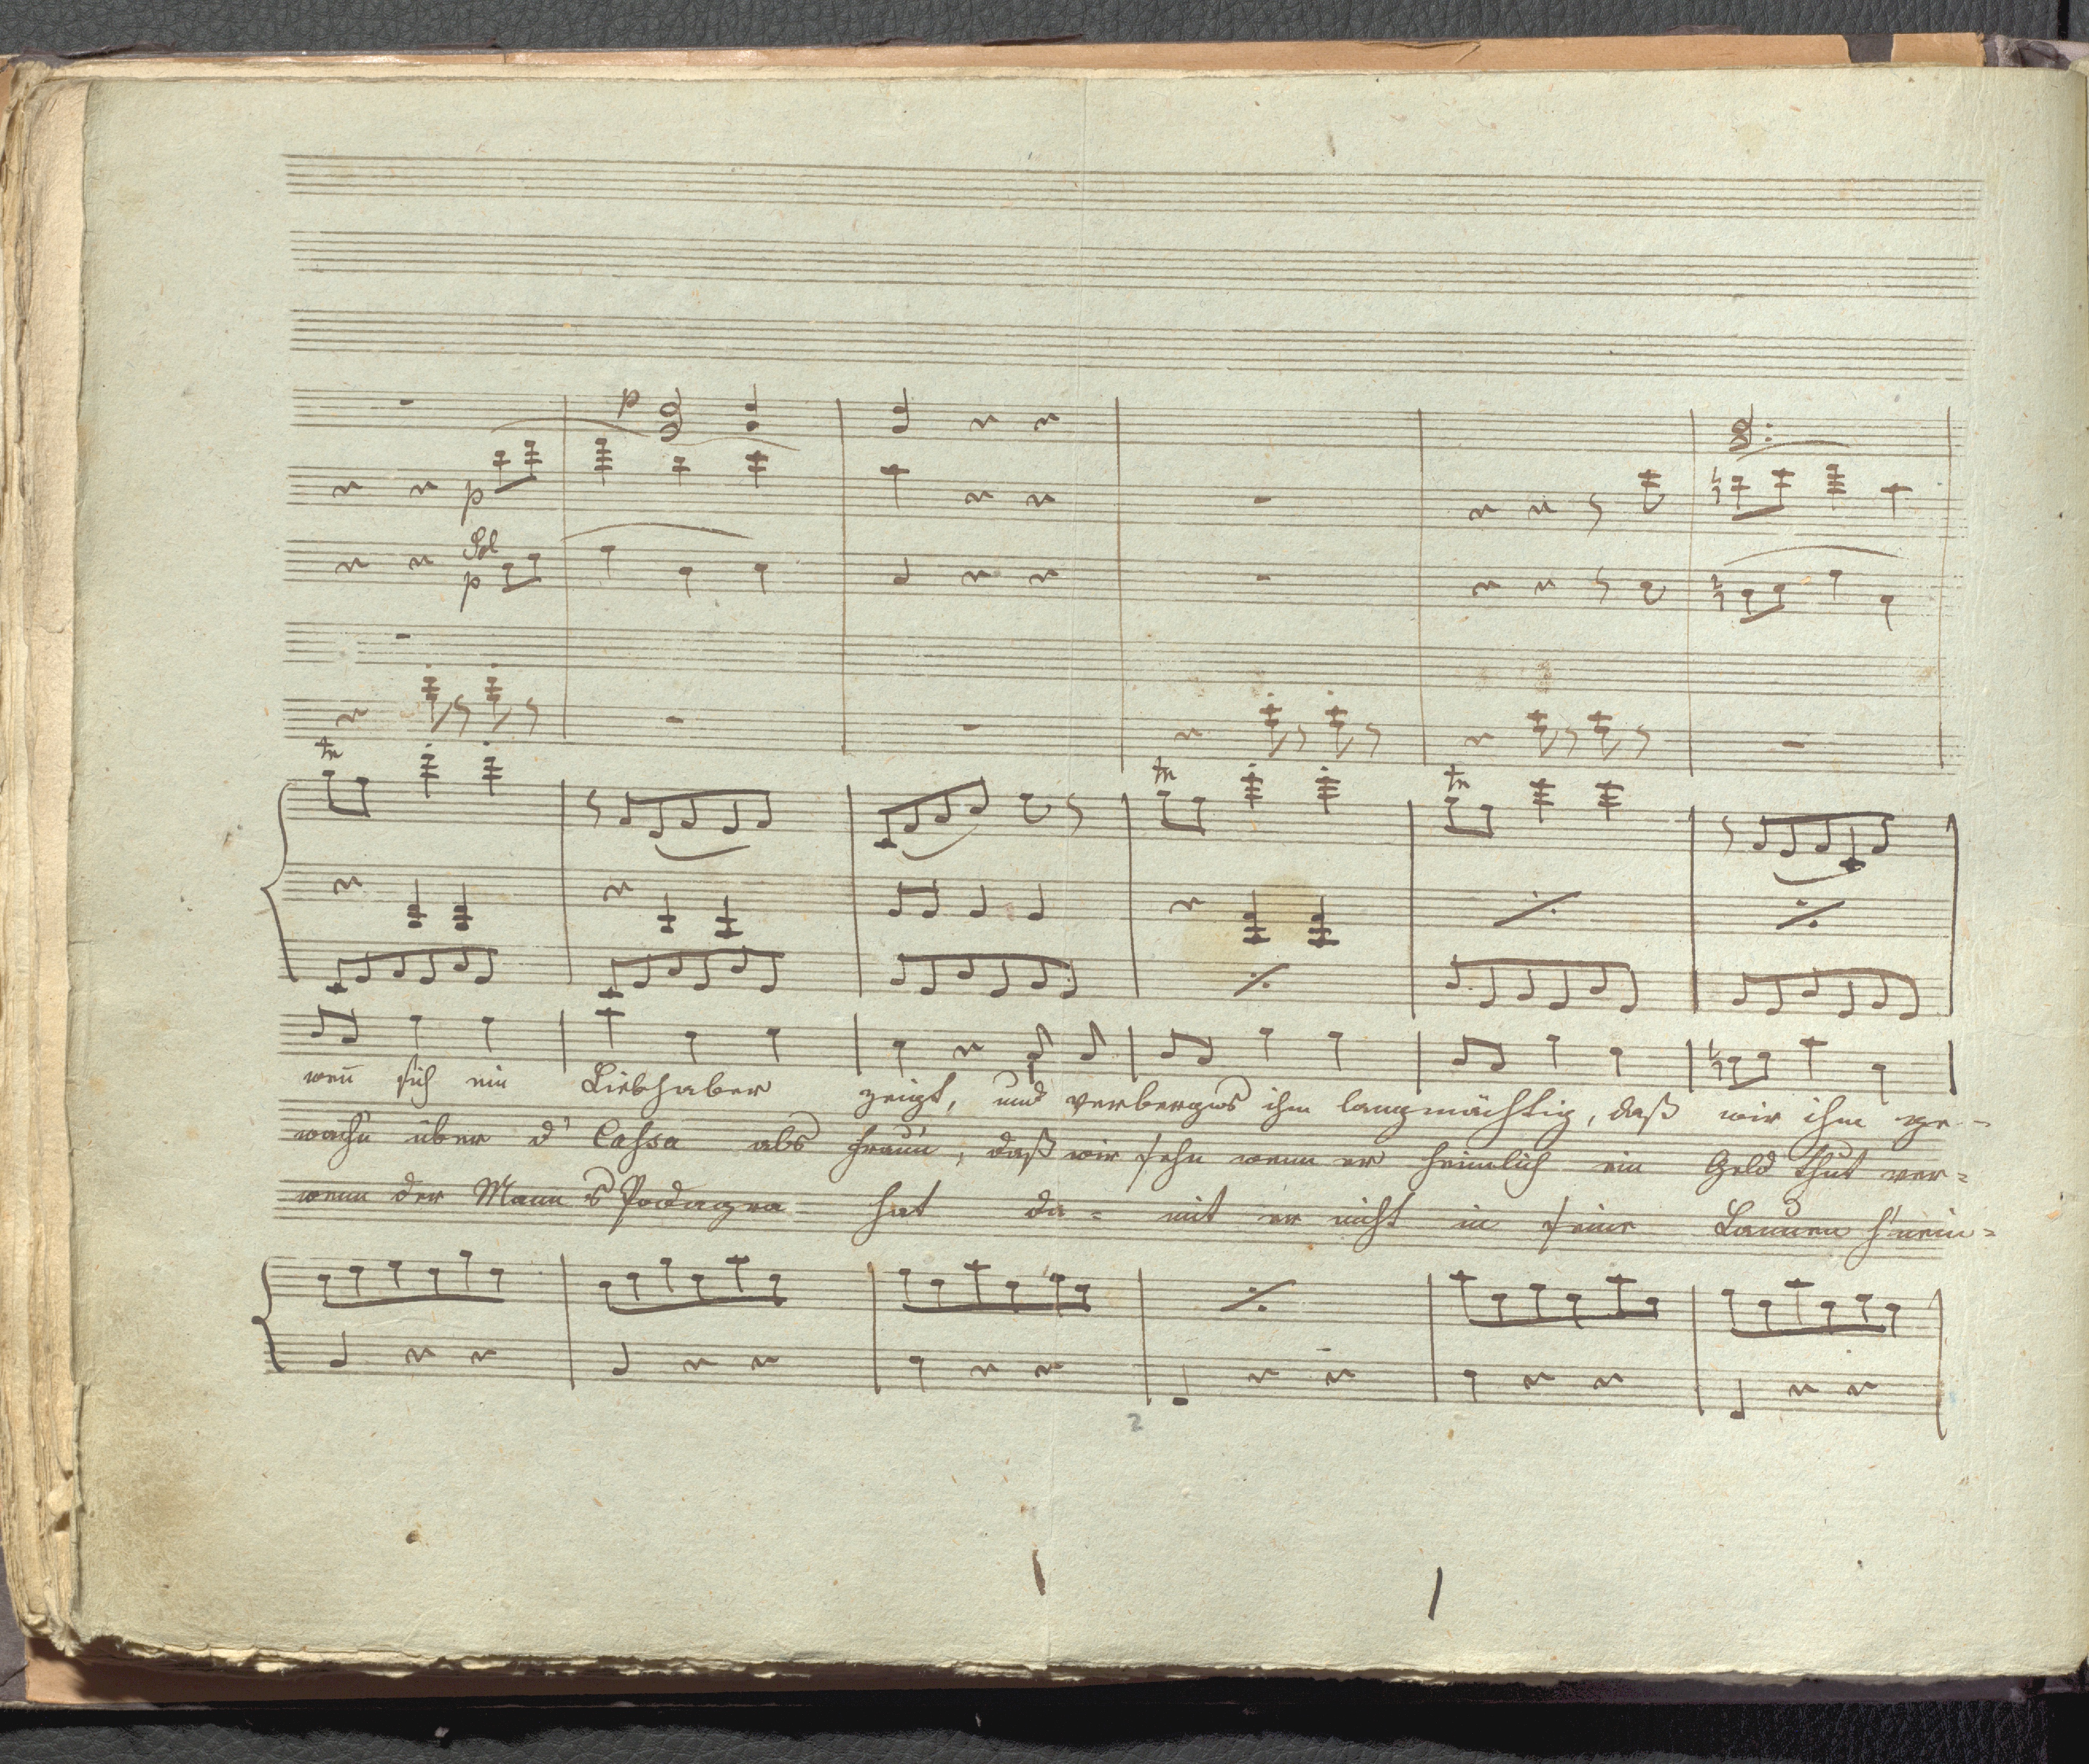 p
p
Sol
p
tr tr tr
weñ sich ein Liebhaber zeigt, und verbergns ihm langmächtig, daß wir ihm ge-
wach'n über d' Cassa als Frau'n, daß wir sehn wenn er heimlich ein Geld thut ver=
wenn der Mann s Podagra hat da= mit er nicht in seine Launen h'nein=
2